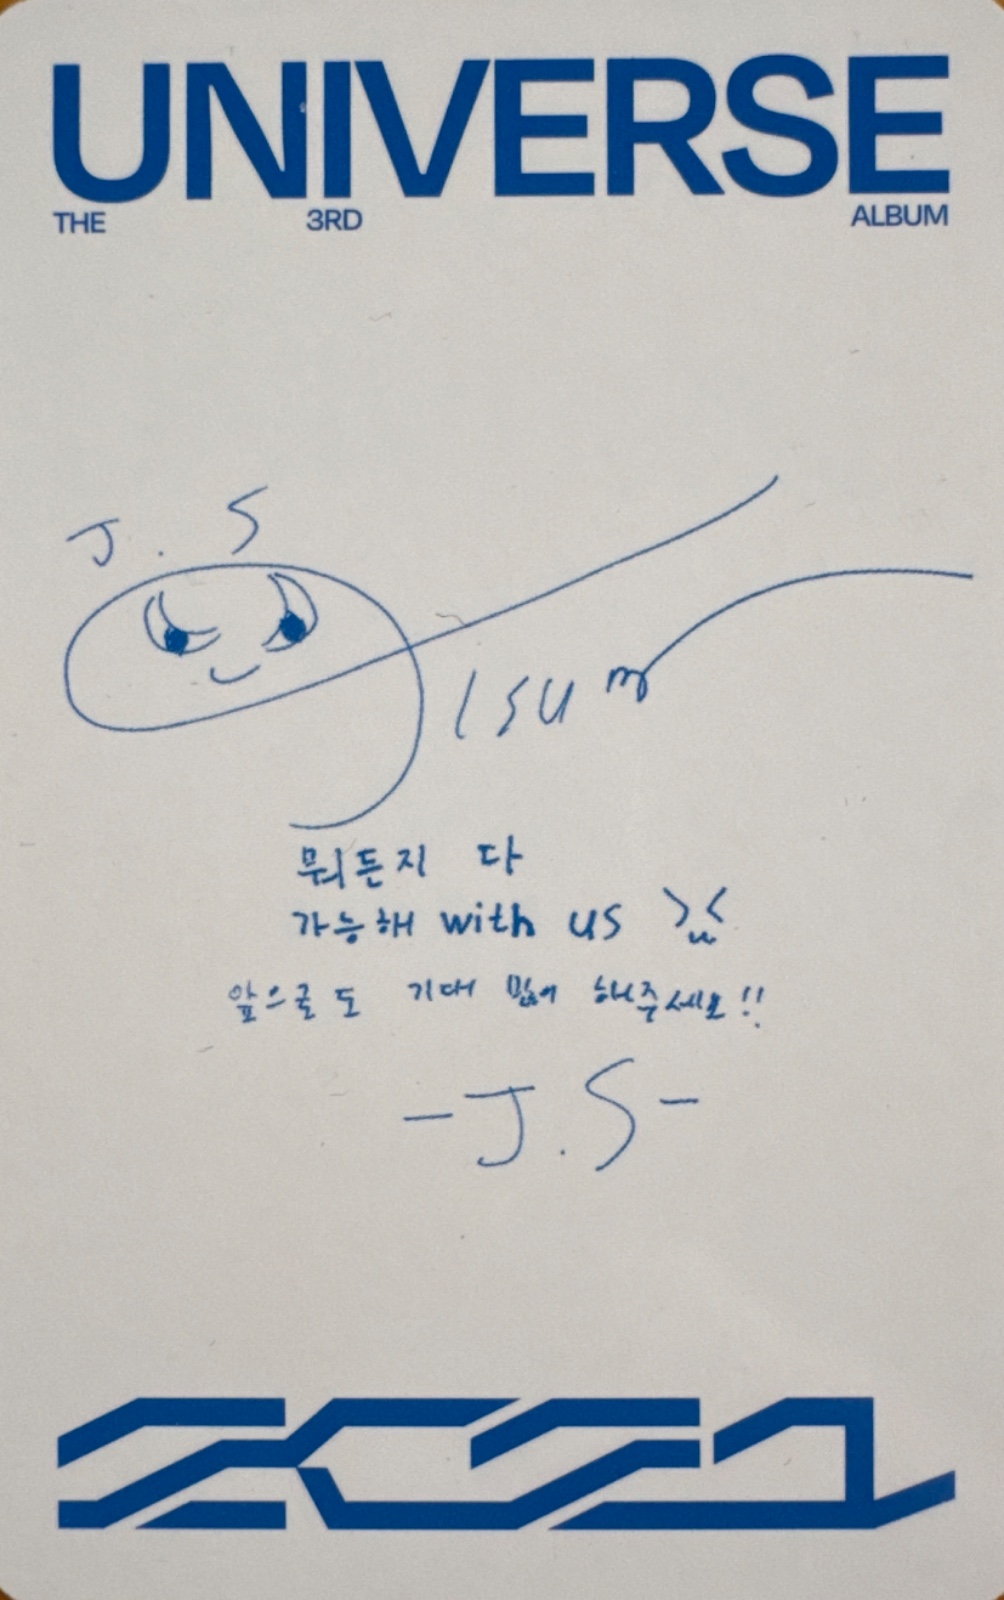 UNIVERSE
THE 3RD ALBUM
J.S
ISUNG
뭐든지 다
가능해 with us
앞으로도 기대 많이 해주세요!!
-J.S-
2021